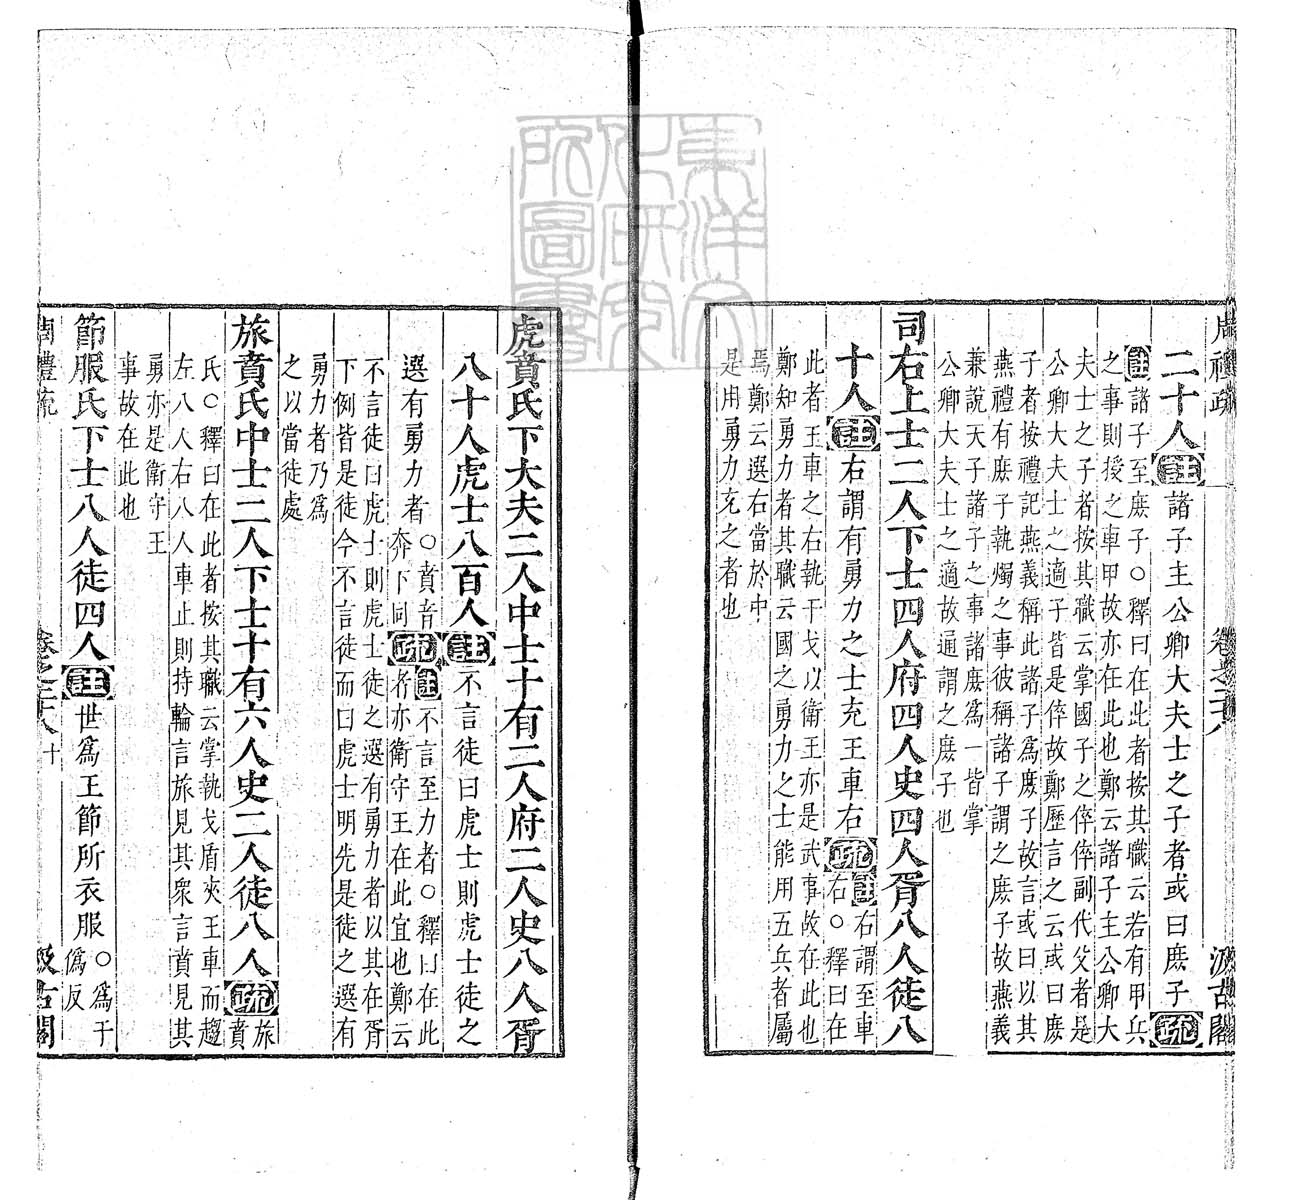 周禮疏
卷之二十八
汲古閣
二十人註諸子主公卿大夫士之子者或曰庶子疏
註諸子至庶子○釋曰在此者按其職云若有甲兵
之事則授之車甲故亦在此也鄭云諸子主公卿大
夫士之子者按其職云掌國子之倅倅副代父者是
公卿大夫士之適子皆是倅故鄭歷言之云或曰庶
子者按禮記燕義稱此諸子爲庶子故言或曰以其
燕禮有庶子執燭之事彼稱諸子謂之庶子故燕義
兼說天子諸子之事諸庶爲一皆掌
公卿大夫士之適故通謂之庶子也
司右上士二人下士四人府四人史四人胥八人徒八
十人註右謂有勇力之士充王車右疏註右謂至車
右○釋曰在
此者王車之右執干戈以衛王亦是武事故在此也
鄭知勇力者其職云國之勇力之士能用五兵者屬
焉鄭云選右當於中
是用勇力充之者也
虎賁氏下大夫二人中士十有二人府二人史八人胥
八十人虎士八百人註不言徒曰虎士則虎士徒之
選有勇力者○賁音
奔下同疏註不言至力者○釋曰在此
者亦衛守王在此宜也鄭云
不言徒曰虎士則虎士徒之選有勇力者以其在胥
下例皆是徒今不言徒而曰虎士明先是徒之選有
勇力者乃爲
之以當徒處
旅賁氏中士二人下士十有六人史二人徒八人疏旅
賁
氏○釋曰在此者按其職云掌執戈盾夾王車而趨
左八人右八人車止則持輪言旅見其衆言賁見其
勇亦是衛守王
事故在此也
節服氏下士八人徒四人註世爲王節所衣服○爲于
僞反
周禮疏
卷之二十八
十
汲古閣